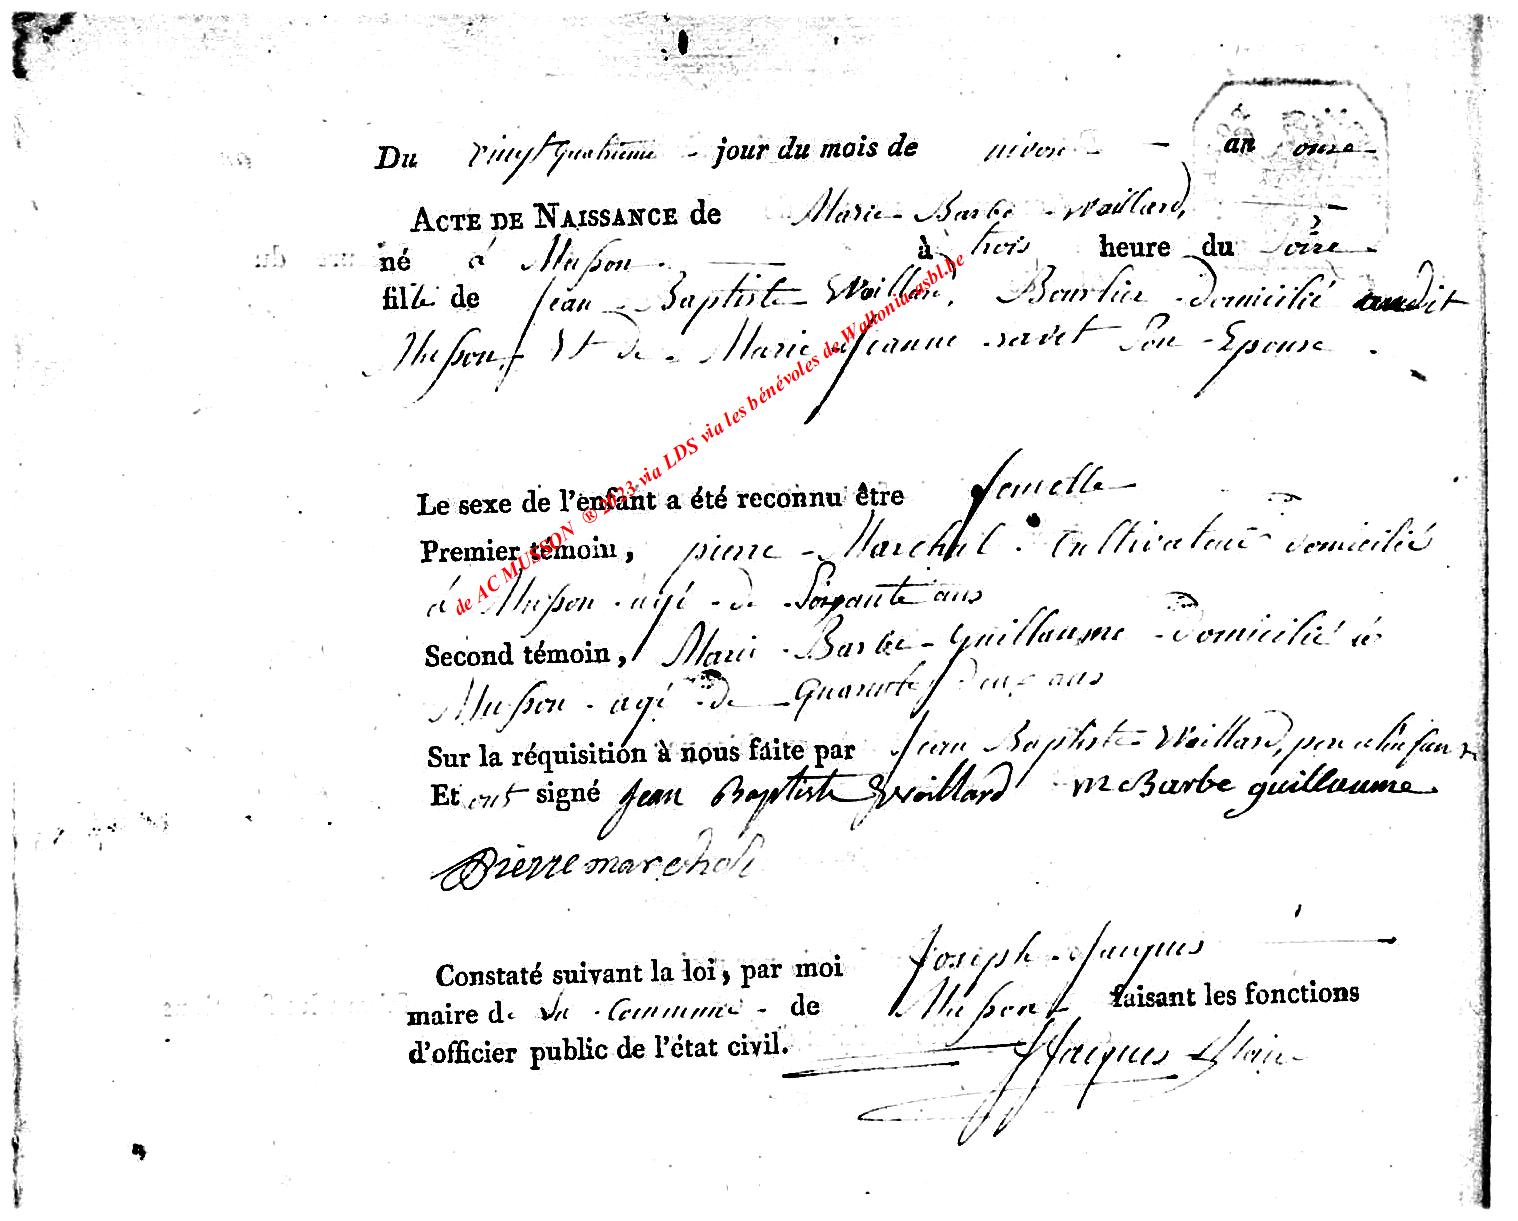 Du vingt quatrieme jour du mois de nivose an onze
ACTE DE NAISSANCE de Marie Barbe Woillard,
né à Musson à trois heure du Soire
fille de Jean Baptiste Woillard, Bourlier domicilié audit
Musson, Et de Marie Jeanne ravet Son Epouse
Le sexe de l'enfant a été reconnu être femelle
Premier témoin, pierre Marchal Cultivateur domicilié
à Musson agé de Soixante ans
Second témoin, Marie Barbe Guillaume domicilié à
Musson agé de Quarante deux ans
Sur la réquisition à nous faite par Jean Baptiste Woillard, pere
Et ont signé Jean Baptiste Woillard M Barbe guillaume
Pierre marchal
Constaté suivant la loi, par moi Joseph Jacques
maire de la Commune de Musson faisant les fonctions
d'officier public de l'état civil. JJacques Maire
de AC MUSSON ® 2023 via LDS via les bénévoles de Walloniacasbl.be